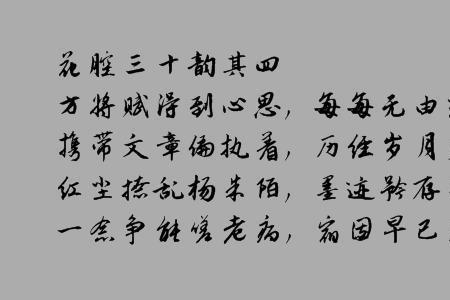 花腔三十韵其四
方将赋得到心思，每每无由
携带文章偏执着，历经岁月
红尘撩乱杨朱陌，墨迹存
一念争能嗟老病，宿因早已